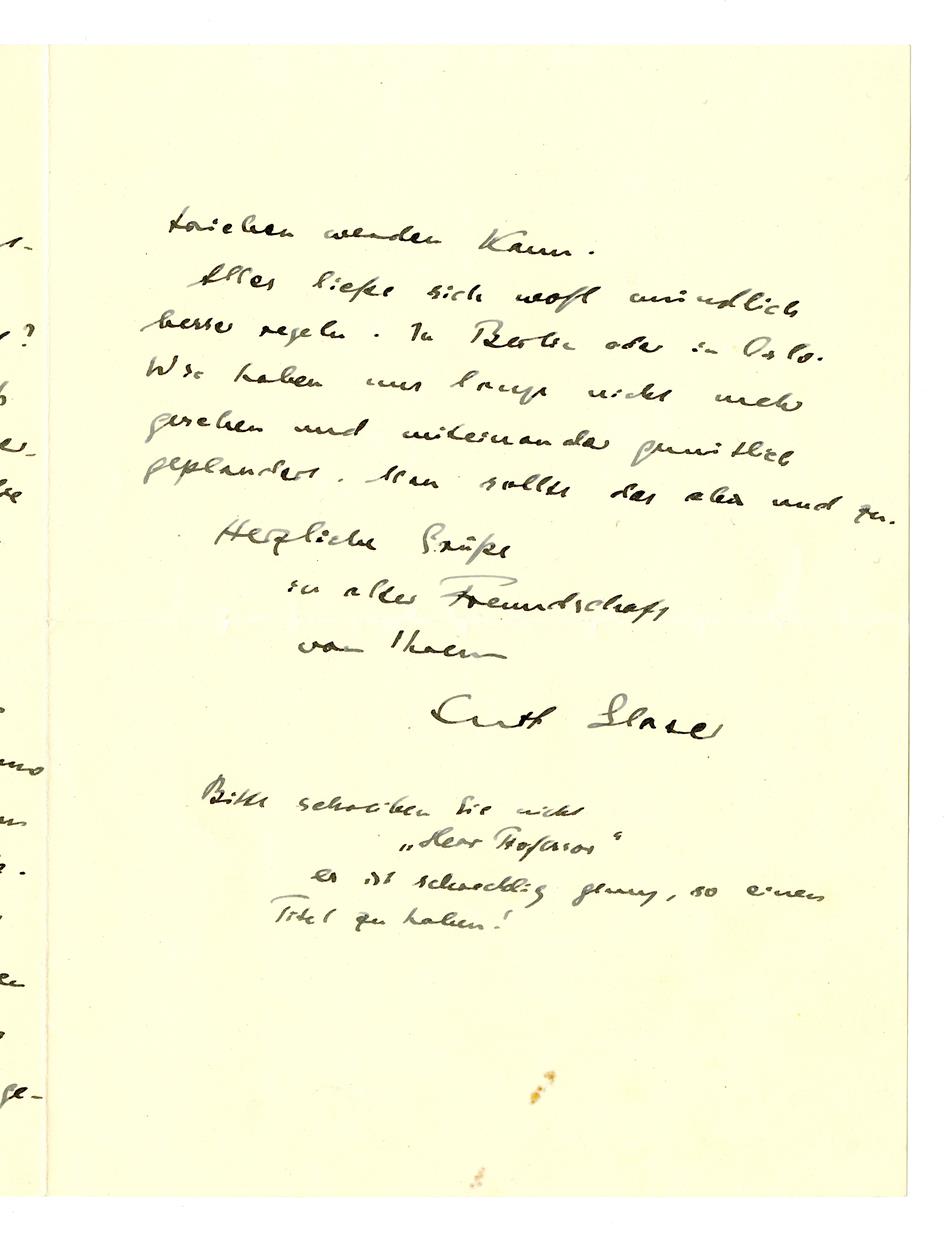 trieben werden kann.
Alles ließe sich wohl mündlich
besser regeln. In Berlin oder in Oslo.
Wir haben uns lange nicht mehr
gesehen und miteinander gemütlich
geplaudert. Man sollte das ab und zu.
Herzliche Grüße
in alter Freundschaft
von Ihrem
Curt Glaser
Bitte schreiben Sie nicht
„Herr Professor“
es ist schrecklich genug, so einen
Titel zu haben!